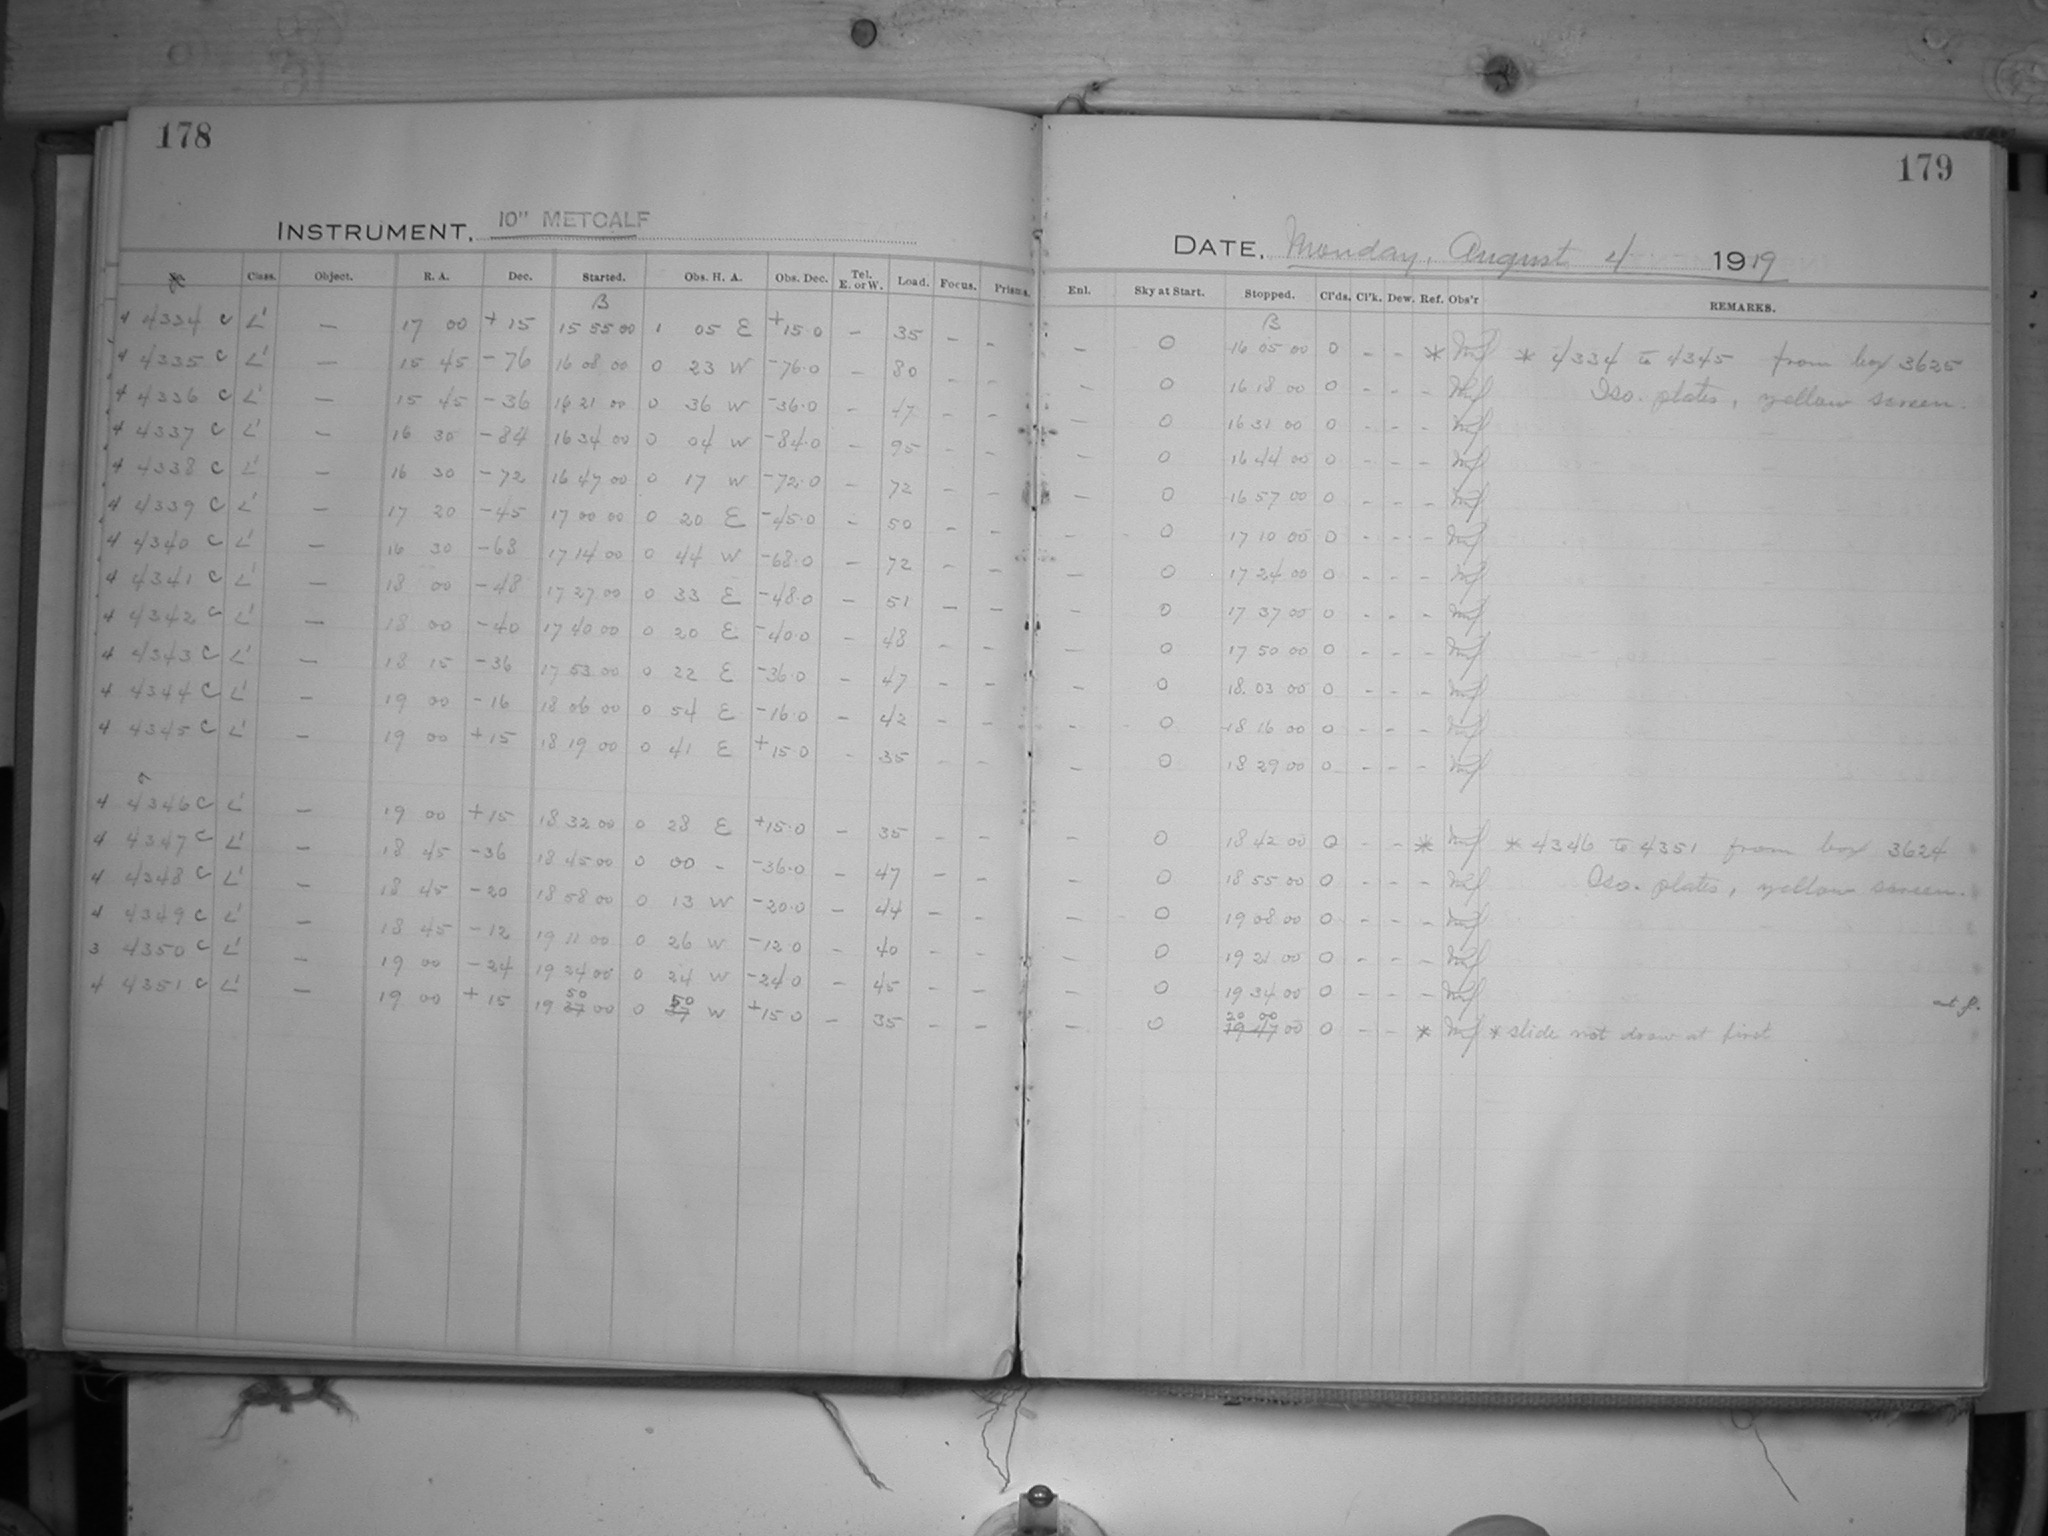 178
INSTRUMENT, 10" METCALF
No. Class. Object. R. A. Dec. Started. Obs. H. A. Obs. Dec. Tel. E. or W. Load. Focus. Prisms.
B
4 4334 C L' — 17 00 +15 15 55 00 1 05 E +15.0 – 35 – –
4 4335 C L' — 15 45 -76 16 08 00 0 23 W -76.0 – 80 – –
4 4336 C L' — 15 45 -36 16 21 00 0 36 W -36.0 – 47 – –
4 4337 C L' — 16 30 -84 16 34 00 0 04 W -84.0 – 95 – –
4 4338 C L' — 16 30 -72 16 47 00 0 17 W -72.0 – 72 – –
4 4339 C L' — 17 20 -45 17 00 00 0 20 E -45.0 – 50 – –
4 4340 C L' — 16 30 -68 17 14 00 0 44 W -68.0 – 72 – –
4 4341 C L' — 18 00 -48 17 27 00 0 33 E -48.0 – 51 – –
4 4342 C L' — 18 00 -40 17 40 00 0 20 E -40.0 – 48 – –
4 4343 C L' — 18 15 -36 17 53 00 0 22 E -36.0 – 47 – –
4 4344 C L' — 19 00 -16 18 06 00 0 54 E -16.0 – 42 – –
4 4345 C L' — 19 00 +15 18 19 00 0 41 E +15.0 – 35 – –
4 4346 C L' — 19 00 +15 18 32 00 0 28 E +15.0 – 35 – –
4 4347 C L' — 18 45 -36 18 45 00 0 00 – -36.0 – 47 – –
4 4348 C L' — 18 45 -20 18 58 00 0 13 W -20.0 – 44 – –
4 4349 C L' — 18 45 -12 19 11 00 0 26 W -12.0 – 40 – –
3 4350 C L' — 19 00 -24 19 24 00 0 24 W -24.0 – 45 – –
50 50
4 4351 C L' — 19 00 +15 19 37 00 0 37 W +15.0 – 35 – –
179
DATE, Monday, August 4 1919
Enl. Sky at Start. Stopped. Cl'ds. Cl'k. Dew. Ref. Obs'r REMARKS.
B
– 0 16 05 00 0 – – * * 4334 to 4345 from box 3625
– 0 16 18 00 0 – – – Iso. plates, yellow screen.
– 0 16 31 00 0 – – –
– 0 16 44 00 0 – – –
– 0 16 57 00 0 – – –
– 0 17 10 00 0 – – –
– 0 17 24 00 0 – – –
– 0 17 37 00 0 – – –
– 0 17 50 00 0 – – –
– 0 18 03 00 0 – – –
– 0 18 16 00 0 – – –
– 0 18 29 00 0 – – –
– 0 18 42 00 0 – – * * 4346 to 4351 from box 3624
– 0 18 55 00 0 – – – Iso. plates, yellow screen.
– 0 19 08 00 0 – – –
– 0 19 21 00 0 – – –
– 0 19 34 00 0 – – –
20 00
– 0 19 47 00 0 – – * * slide not draw at first